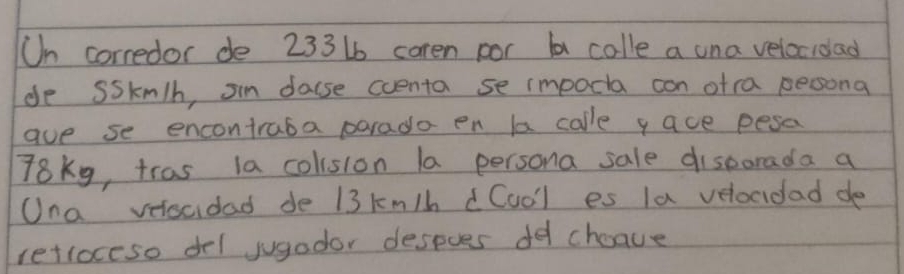 Un corredor de 233 lb coren por la calle a una velocidad
de 55km/h, sin darse cuenta se impacta con otra persona
que se encontraba parada en la calle y que pesa
78 kg, tras la colision la persona sale disparada a
Una velocidad de 13 km/h ¿Cuál es la velocidad de
retroceso del jugador despues del choque